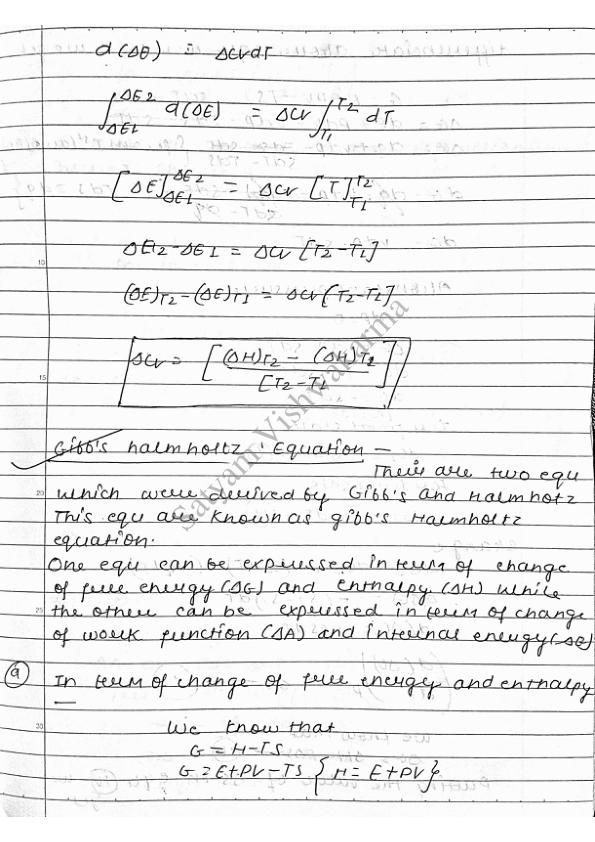 d(ΔE) = ΔCvdT
∫ΔE1^ΔE2 d(ΔE) = ΔCv ∫T1^T2 dT
[ΔE]ΔE1^ΔE2 = ΔCv [T]T1^T2
ΔE2-ΔE1 = ΔCv [T2-T1]
(ΔE)T2-(ΔE)T1 = ΔCv[T2-T1]
ΔCv = [(ΔH)T2 - (ΔH)T1]
[T2-T1
Gibb's halmholtz Equation -
Their are two equ
which were derived by Gibb's and Halmhotz
This equ are known as gibb's Halmholtz
equation.
One equ can be expressed in term of change
of free energy (ΔG) and Enthalpy (ΔH) while
the other can be expressed in term of change
of work function (ΔA) and internal energy(ΔE)
(a) In term of change of free energy and enthalpy
-
We know that
G = H-TS
G = E+PV-TS {H = E+PV}
Satyam Vishwakarma
10
15
20
25
30